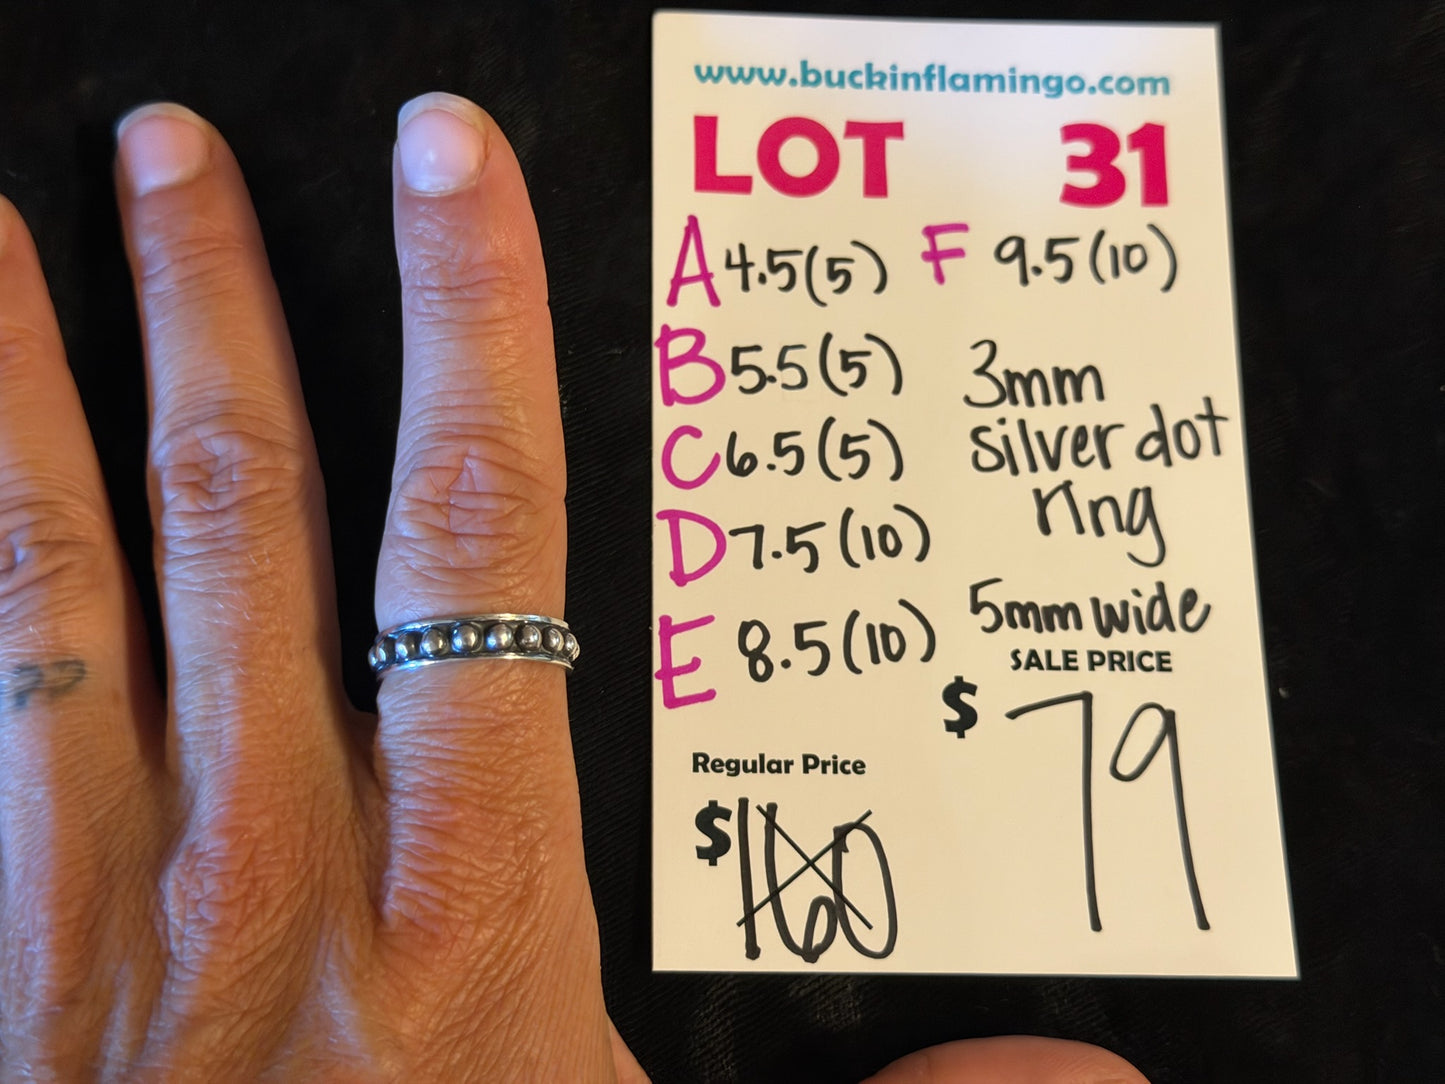 www.buckinflamingo.com
LOT 31
A 4.5(5)
B 5.5(5)
C 6.5(5)
D 7.5(10)
E 8.5(10)
F 9.5(10)
3mm
silver dot
ring
5mm wide
SALE PRICE
$79
Regular Price
$160